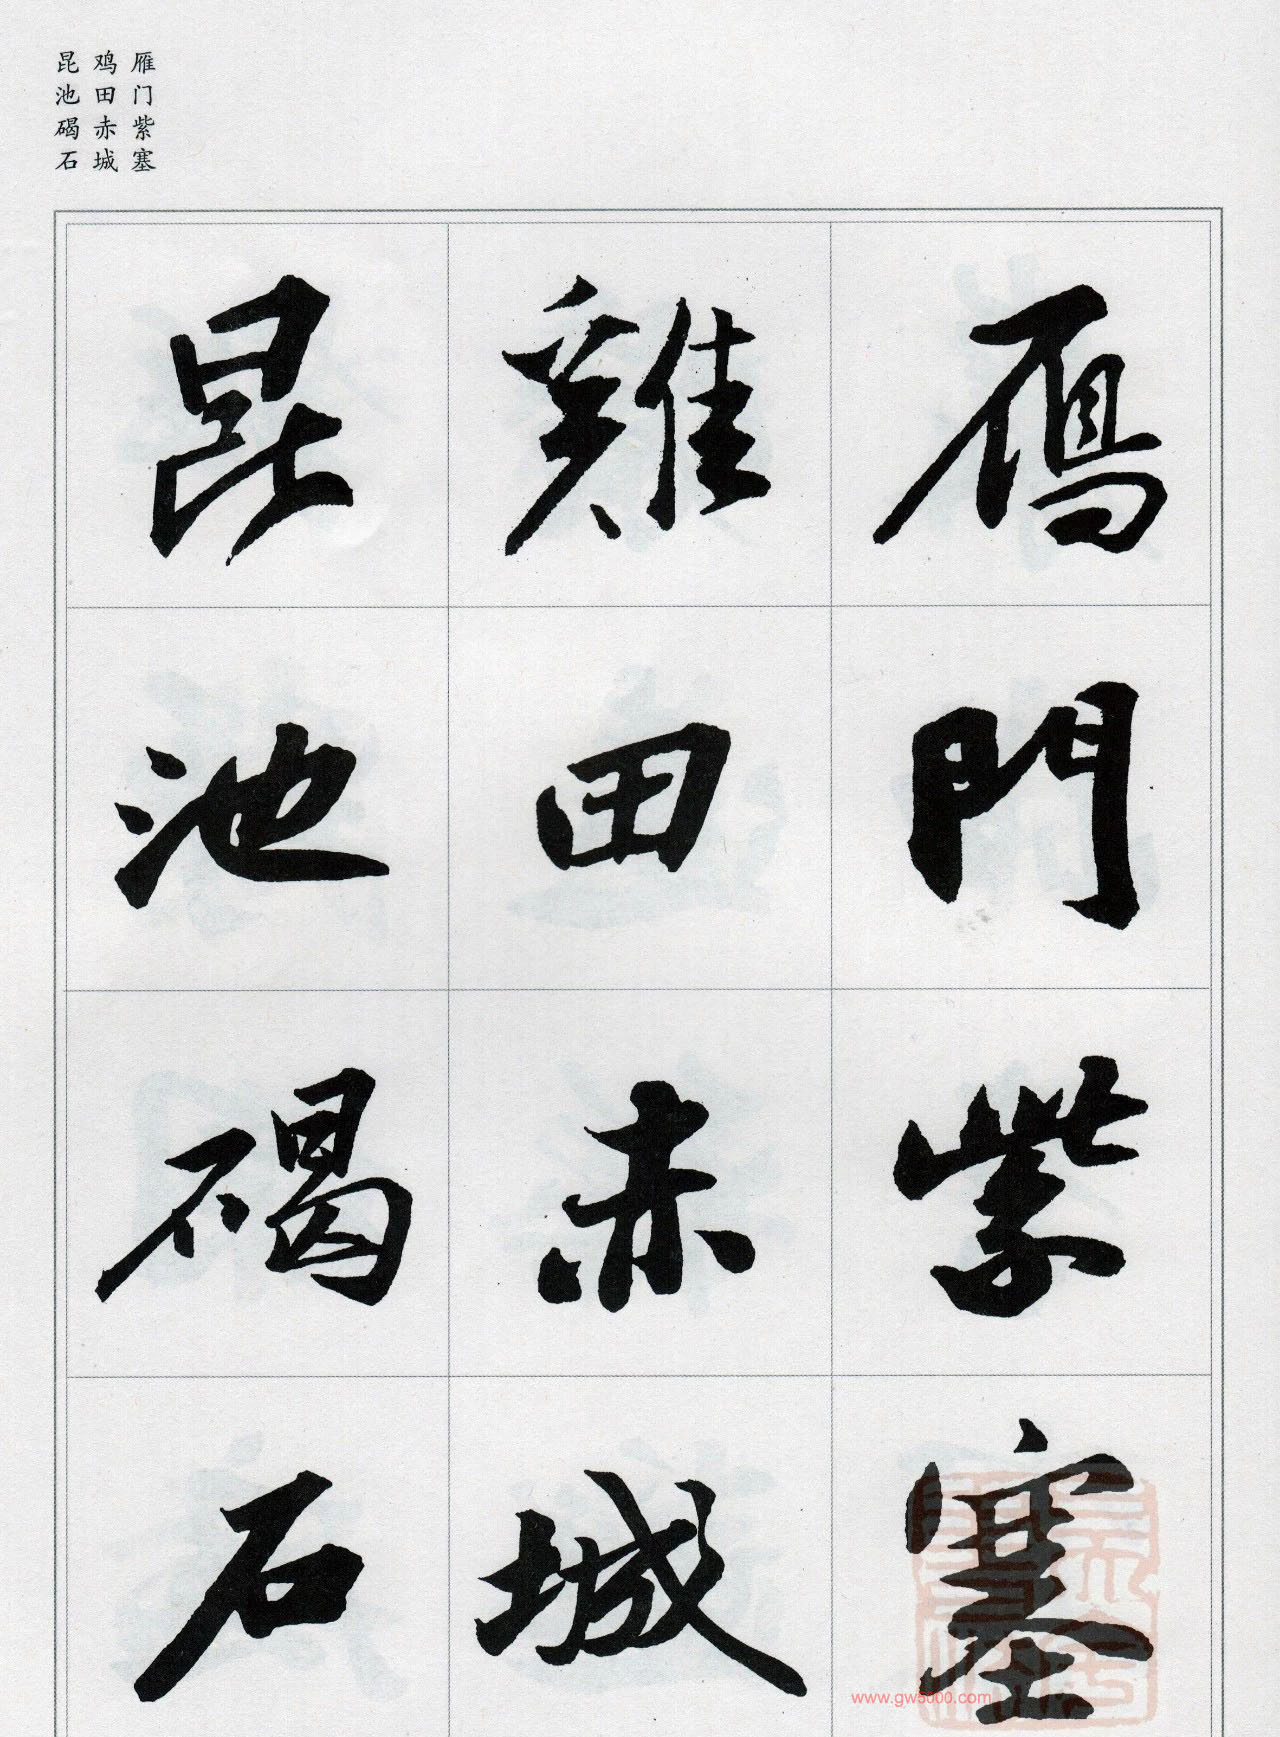 雁门紫塞
鸡田赤城
昆池碣石
鴈門紫塞
雞田赤城
昆池碣石
www.gw5000.com